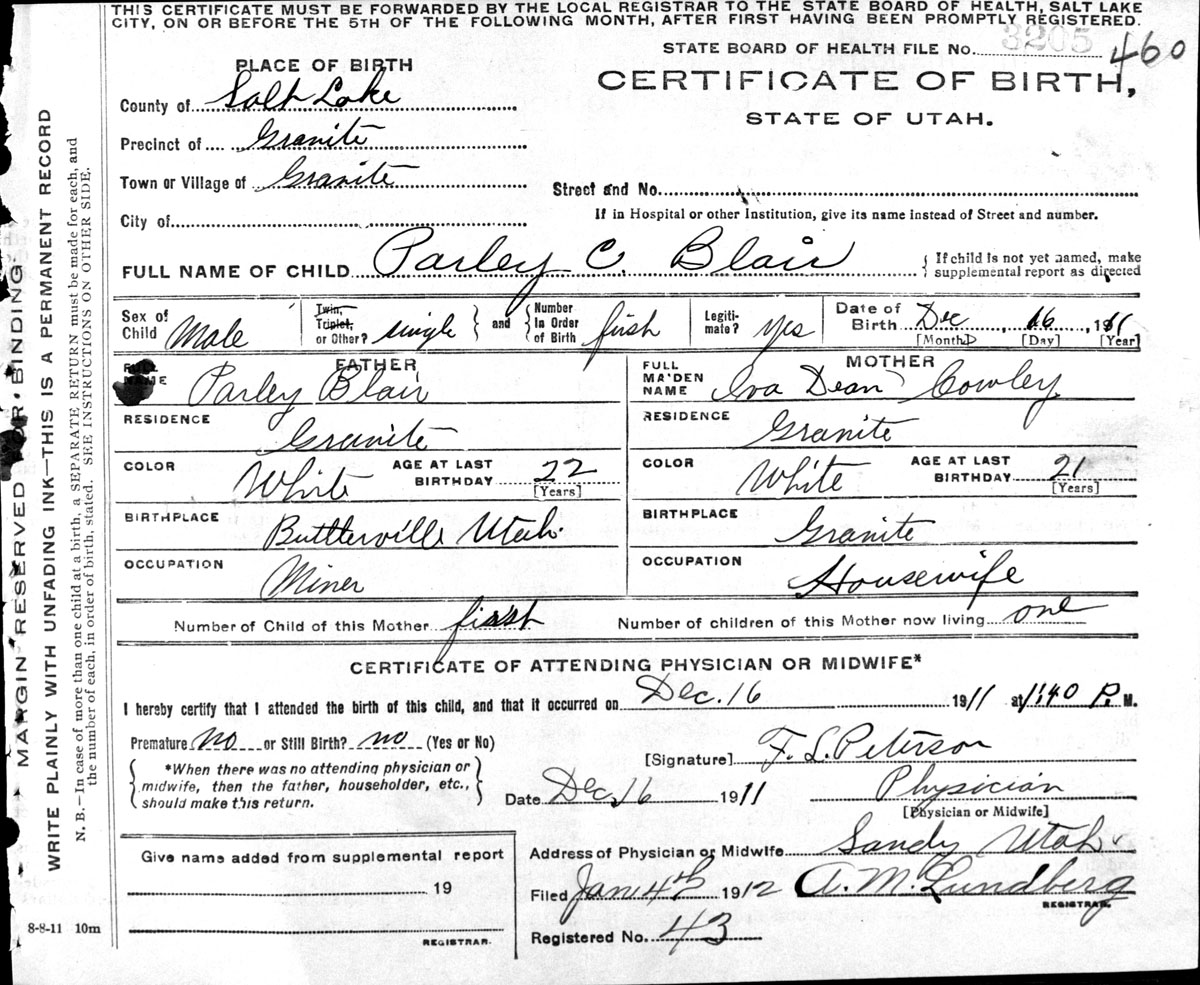 THIS CERTIFICATE MUST BE FORWARDED BY THE LOCAL REGISTRAR TO THE STATE BOARD OF HEALTH, SALT LAKE
CITY, ON OR BEFORE THE 5TH OF THE FOLLOWING MONTH, AFTER FIRST HAVING BEEN PROMPTLY REGISTERED.
STATE BOARD OF HEALTH FILE No. 3205 460
PLACE OF BIRTH
CERTIFICATE OF BIRTH,
STATE OF UTAH.
County of Salt Lake
Precinct of Granite
Town or Village of Granite
Street and No.
City of
If in Hospital or other Institution, give its name instead of Street and number.
FULL NAME OF CHILD Parley C. Blair { If child is not yet named, make
supplemental report as directed
Sex of Child Male
Twin, Triplet, or Other? single } and { Number In Order of Birth first
Legiti-mate? yes
Date of Birth Dec, 16, 1911
[Month] [Day] [Year]
FATHER
FULL NAME Parley Blair
RESIDENCE Granite
COLOR White AGE AT LAST BIRTHDAY 22 [Years]
BIRTHPLACE Buttlerville Utah
OCCUPATION Miner
MOTHER
FULL MAIDEN NAME Iva Dean Cowley
RESIDENCE Granite
COLOR White AGE AT LAST BIRTHDAY 21 [Years]
BIRTHPLACE Granite
OCCUPATION Housewife
Number of Child of this Mother first Number of children of this Mother now living one
CERTIFICATE OF ATTENDING PHYSICIAN OR MIDWIFE*
I hereby certify that I attended the birth of this child, and that it occurred on Dec. 16 1911 at 11:40 P. M.
Premature no or Still Birth? no (Yes or No)
{ *When there was no attending physician or
midwife, then the father, householder, etc.,
should make this return. }
[Signature] F. L. Peterson
Date Dec, 16 1911 Physician
[Physician or Midwife]
Give name added from supplemental report
19
REGISTRAR.
8-8-11 10m
Address of Physician or Midwife Sandy Utah
Filed Jan 4th 1912 A. M. Lundberg
REGISTRAR.
Registered No. 43
MARGIN RESERVED FOR BINDING.
WRITE PLAINLY WITH UNFADING INK—THIS IS A PERMANENT RECORD
N. B.—In case of more than one child at a birth, a SEPARATE RETURN must be made for each, and
the number of each, in order of birth, stated. SEE INSTRUCTIONS ON OTHER SIDE.